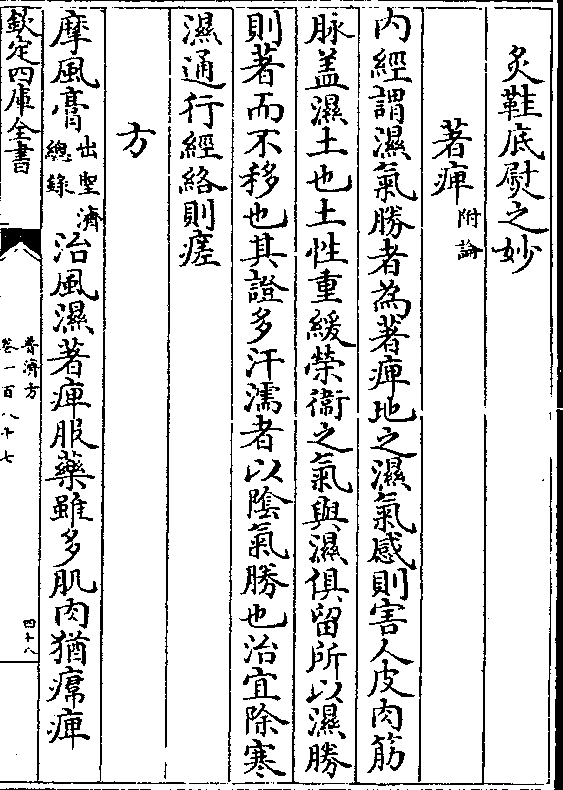 炙鞋底熨之妙
著痺附論
内經謂濕氣勝者為著痺地之濕氣感則害人皮肉筋
脉盖濕土也土性重緩榮衞之氣與濕俱留所以濕勝
則著而不移也其證多汗濡者以陰氣勝也治宜除寒
濕通行經絡則瘥
方
摩風膏出聖濟總錄治風濕著痺服藥雖多肌肉猶㾕痺
欽定四庫全書
普濟方
卷一百八十七
四十八